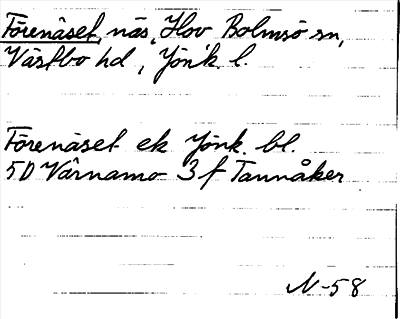 Förenäset, näs, Hov Bolmsö sn,
Västbo hd, Jönk. l.
Förenäset ek Jönk. bl.
5D Värnamo 3f Tannåker
N-58